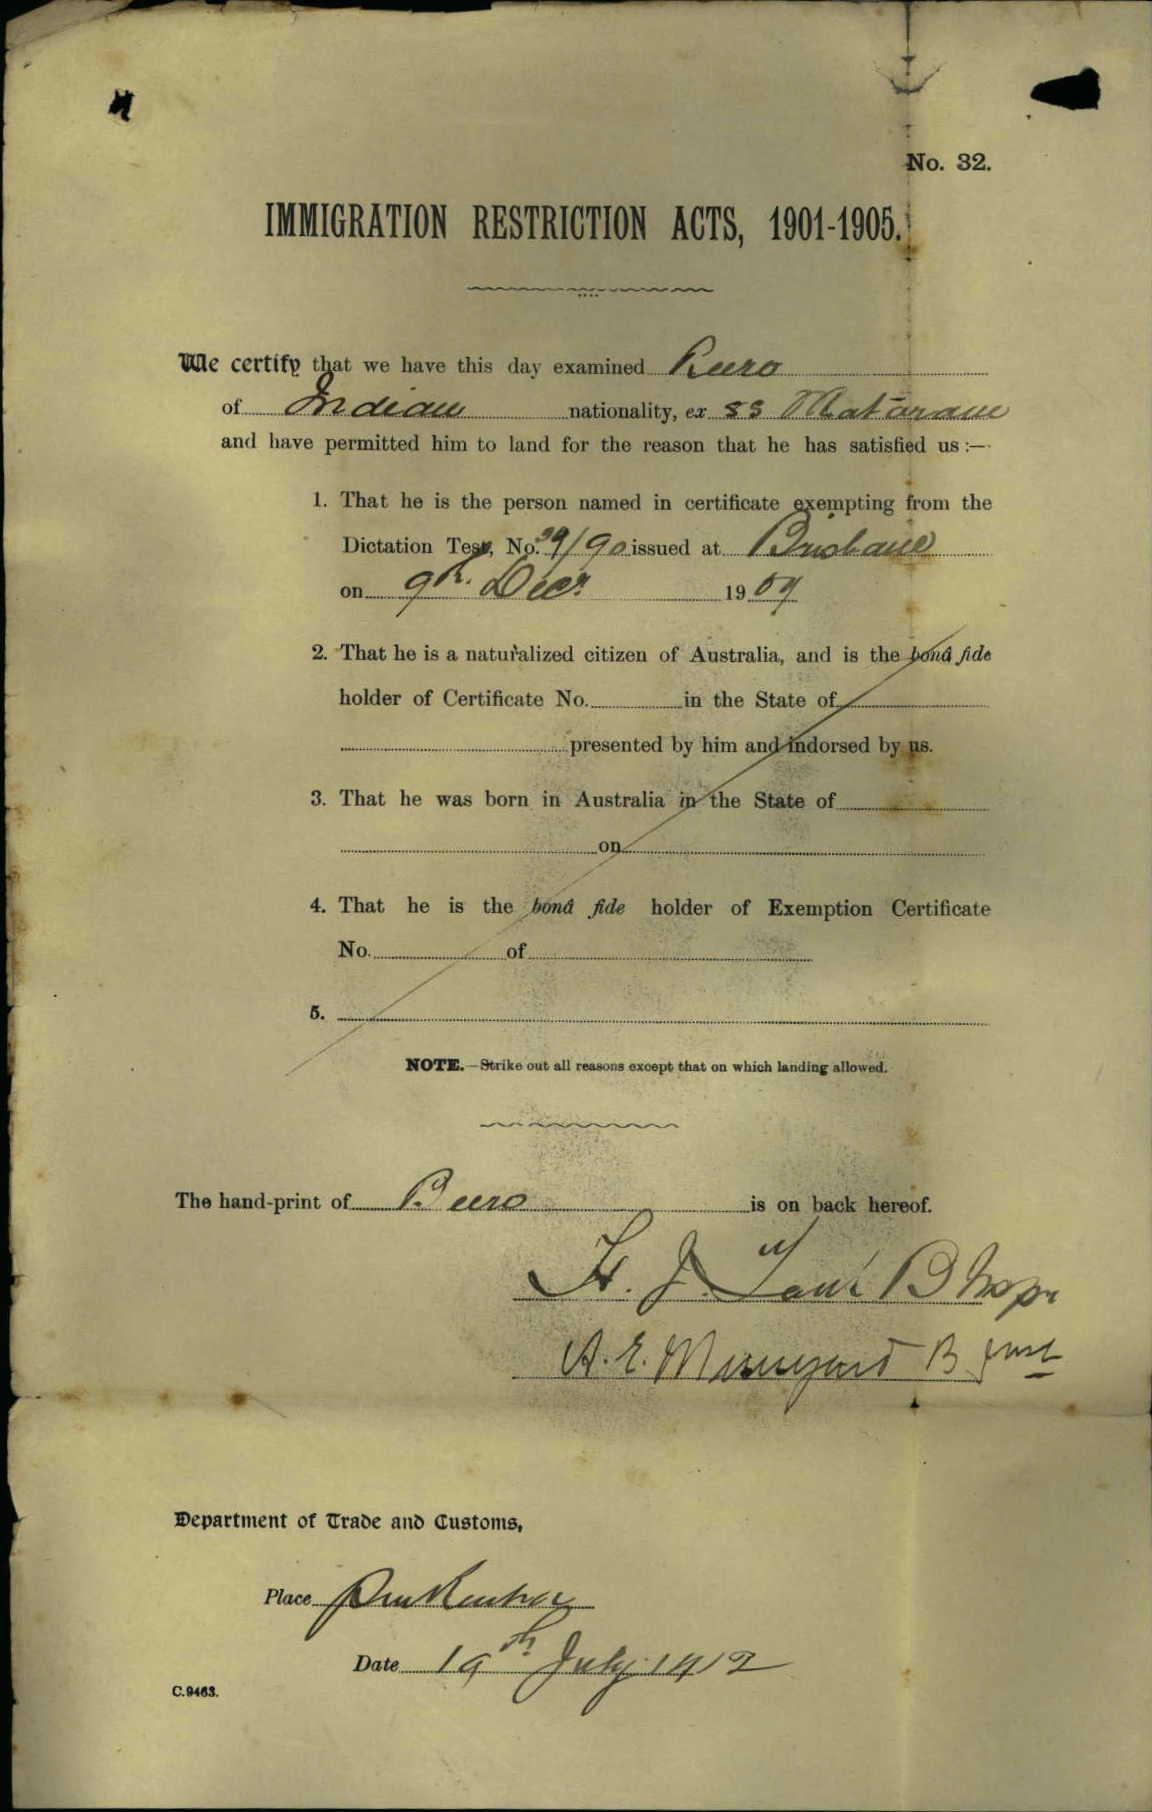 No. 32.
IMMIGRATION RESTRICTION ACTS, 1901-1905.
We certify that we have this day examined Beero
of Indian nationality, ex ss Mataram
and have permitted him to land for the reason that he has satisfied us :—
1. That he is the person named in certificate exempting from the
Dictation Test, No. 09/90 issued at Brisbane
on 9th. Decr 1909
2. That he is a naturalized citizen of Australia, and is the bonâ fide
holder of Certificate No. in the State of
presented by him and indorsed by us.
3. That he was born in Australia in the State of
on
4. That he is the bonâ fide holder of Exemption Certificate
No. of
5.
NOTE.—Strike out all reasons except that on which landing allowed.
The hand-print of Beero is on back hereof.
H. J.
A. E.
Department of Trade and Customs,
Place Pinkenba
Date 19th July 1912
C.9463.